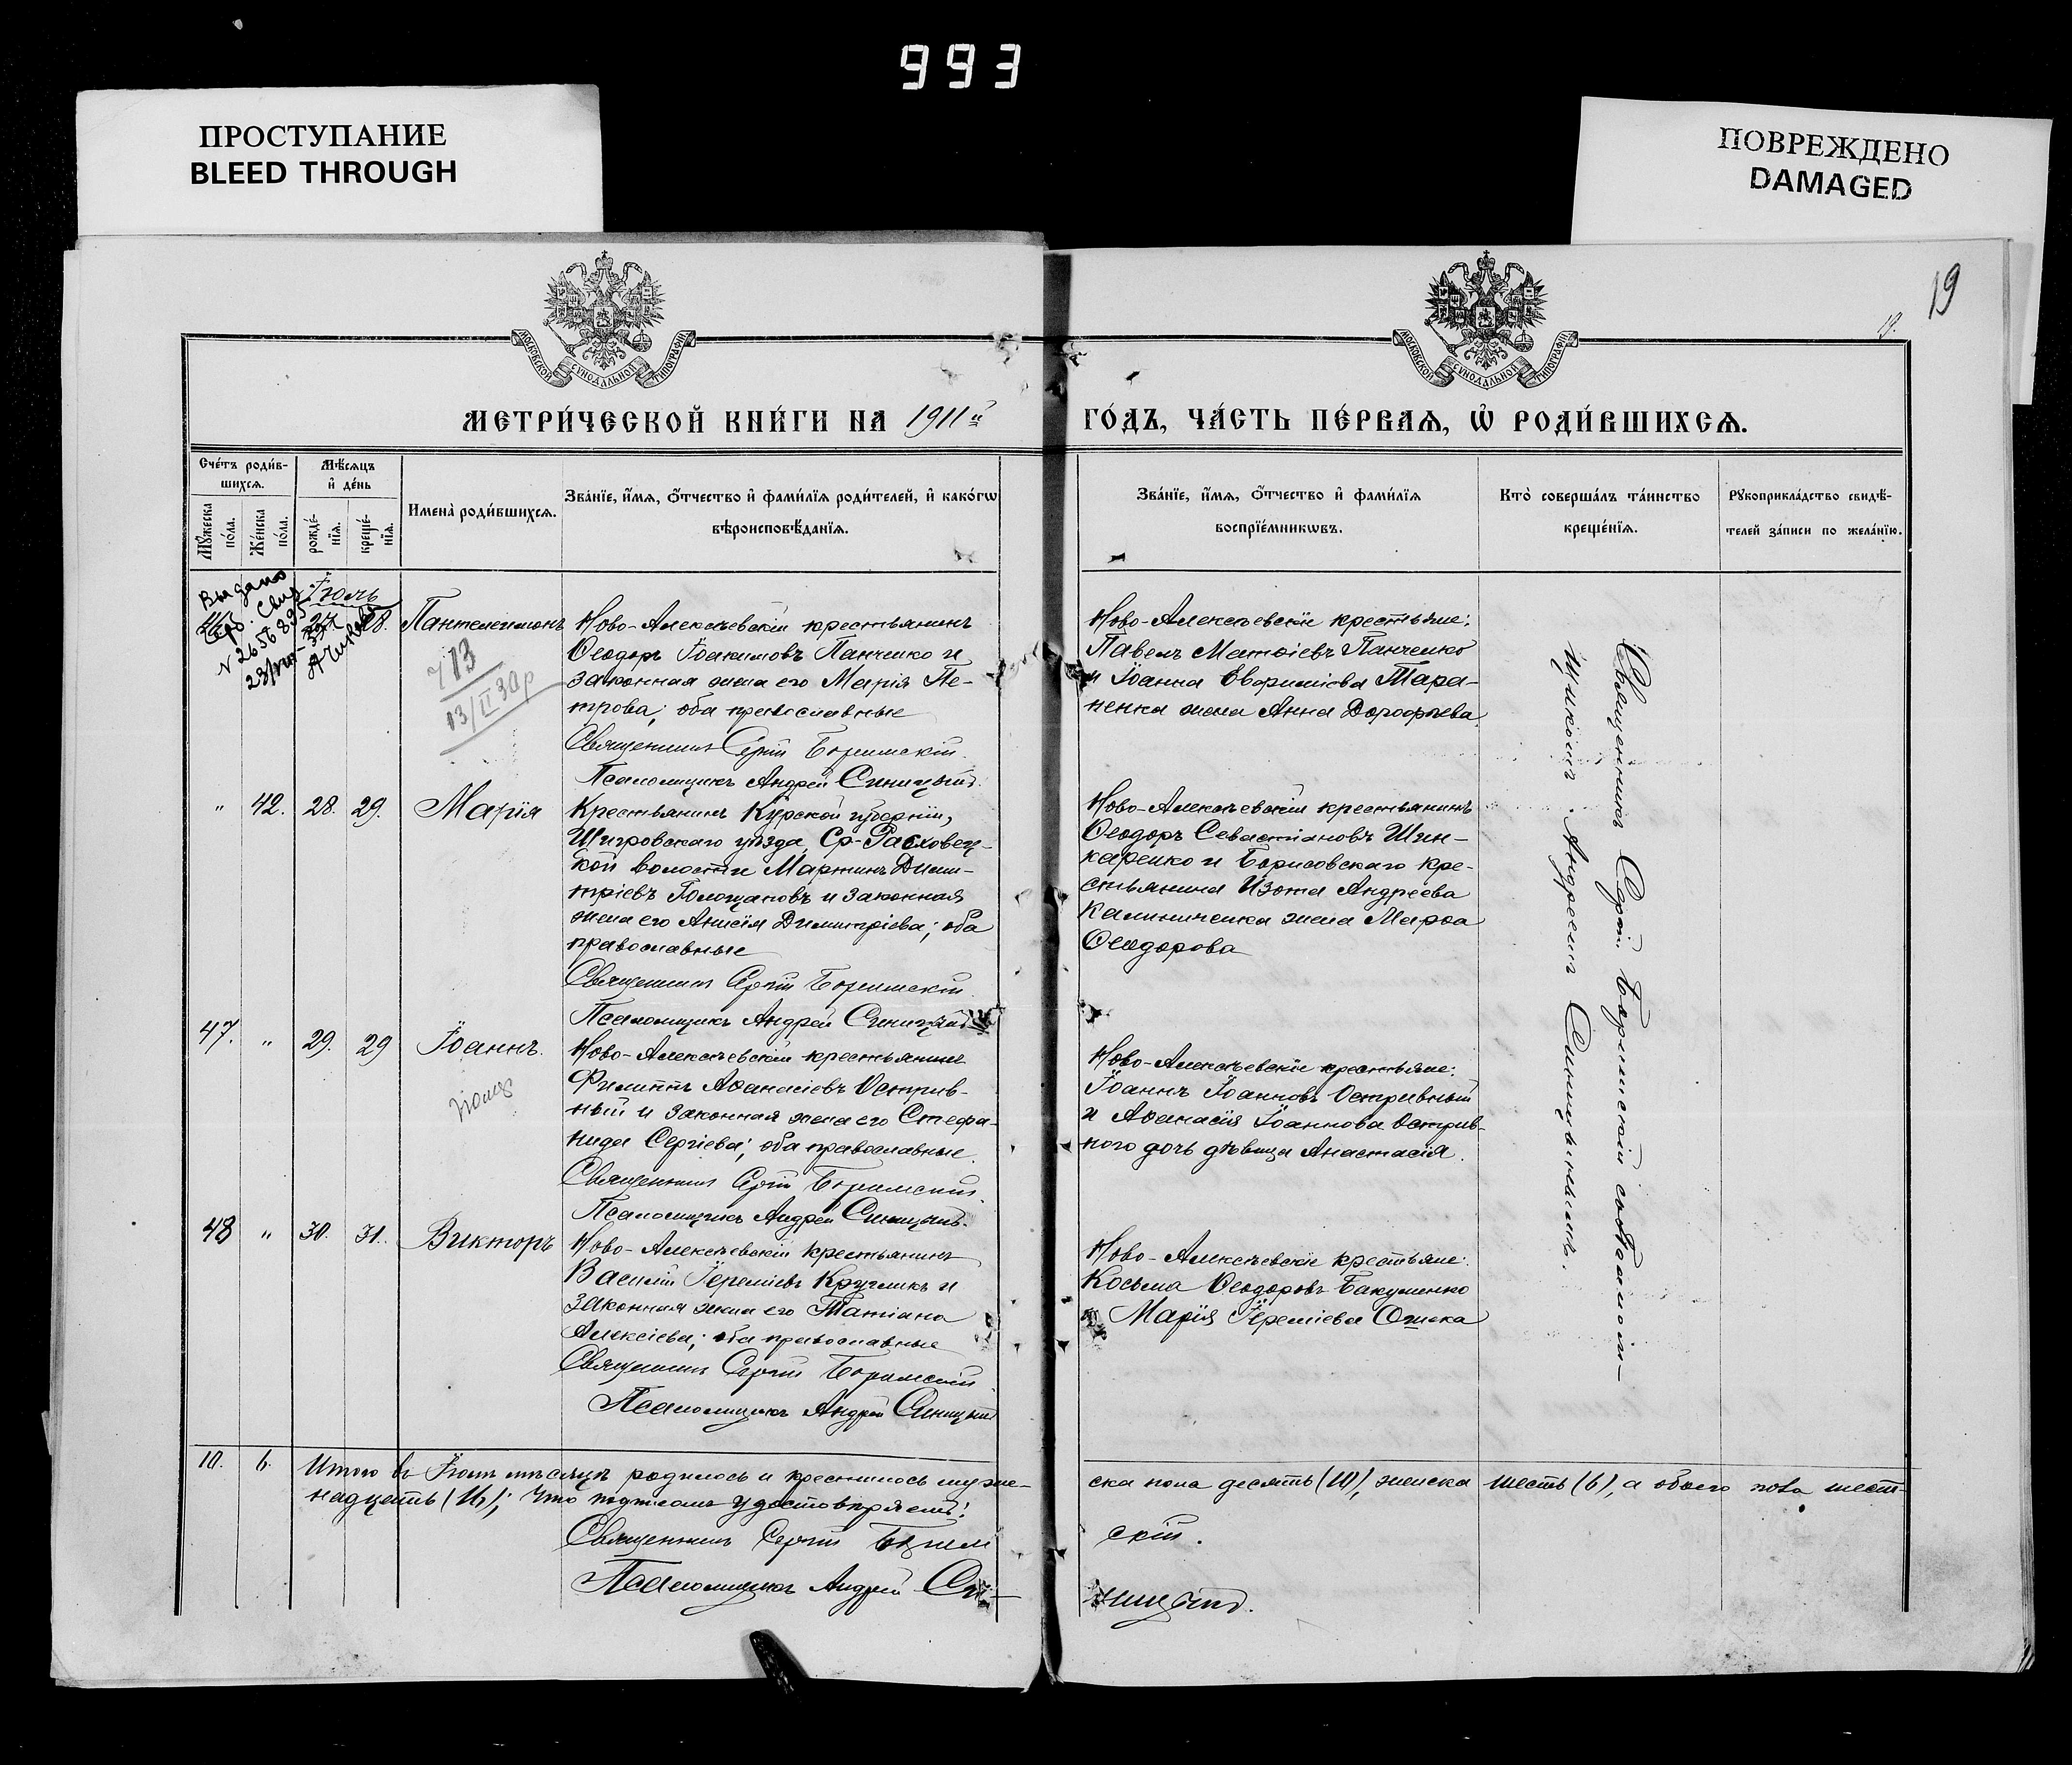 993
ПРОСТУПАНИЕ
BLEED THROUGH
ПОВРЕЖДЕНО
DAMAGED
МОСКОВСКОЙ СѴНОДАЛЬНОЙ ТИПОГРАФІИ
МОСКОВСКОЙ СѴНОДАЛЬНОЙ ТИПОГРАФІИ
19
19.
МЕТРИ́ЧЕСКОЙ КНИ́ГИ НА 1911й
ГО́ДЪ, ЧА́СТЬ ПЕ́РВАѦ, Ѡ҆ РОДИ́ВШИХСѦ.
Сче́тъ роди́в-
шихсѧ.
Мѣ́сѧцъ
и҆ де́нь
Мꙋ́жеска
по́ла.
Же́нска
по́ла.
рожде́-
нїѧ.
креще́-
нїѧ.
Имена̀ роди́вшихсѧ.
Зва́нїе, и҆́мѧ, ѻ҆́тчество и҆ фами́лїѧ роди́телей, и҆ како́гѡ
вѣроисповѣ́данїѧ.
Зва́нїе, и҆́мѧ, ѻ҆́тчество и҆ фами́лїѧ
воспрїе́мникѡвъ.
Кто̀ соверша́лъ та́инство
креще́нїѧ.
Рꙋкоприкла́дство свидѣ́-
телей за́писи по жела́нїю.
Выдано
Іюль
N 2656835
28. Пантелеимонъ
713
13/II 30р
Ново-Алексѣевскій крестьянинъ
Ѳеодоръ Іоакимовъ Панченко и
законная жена его Марія Пе-
трова; оба православные
Священникъ Сергій Боримскій.
Псаломщикъ Андрей Синицынъ.
Ново-Алексѣевскіе крестьяне:
Павелъ Матѳіевъ Панченко
и Іоанна Евѳиміева Тара-
ненка жена Анна Дороѳеева
" 42. 28. 29. Марія
Крестьянинъ Курской губерніи,
Щигровскаго уѣзда, Ср-Расховец-
кой волости Мартинъ Дими-
тріевъ Голощаповъ и законная
жена его Анисія Димитріева; оба
православные
Священникъ Сергій Боримскій
Псаломщикъ Андрей Синицынъ
Ново-Алексѣевскій крестьянинъ
Ѳеодоръ Севастіановъ Шин-
каренко и Борисовскаго кре-
стьянина Изота Андреева
Калиниченка жена Марѳа
Ѳеодорова
47. " 29. 29 Іоаннъ.
Ново-Алексѣевскій крестьянинъ
Филиппъ Аѳанасіевъ Острив-
ный и законная жена его Стефа-
нида Сергіева; оба православные.
Священникъ Сергій Боримскій.
Псаломщикъ Андрей Синицынъ.
Ново-Алексѣевскіе крестьяне:
Іоаннъ Іоанновъ Остривный
и Аѳанасія Іоаннова Острив-
ного дочь дѣвица Анастасія.
48 " 30. 31. Викторъ
Ново-Алексѣевскій крестьянинъ
Василій Іереміевъ Кругликъ и
законная жена его Татіана
Алексіева; оба православные
Священникъ Сергій Боримскій.
Псаломщикъ Андрей Синицынъ
Ново-Алексѣевскіе крестьяне:
Косьма Ѳеодоровъ Бакуменко
и Марія Іереміева Ошека
Священникъ Сергій Боримскій съ псалом-
щикомъ Андреемъ Синицынымъ.
10. 6. Итого въ Іюлѣ мѣсяцѣ родилось и крестилось муже-
ска пола десять (10), женска шесть (6), а обоего пола шест-
надцать (16); что подписомъ удостовѣряемъ:
Священникъ Сергій Борим
скій.
Псаломщикъ Андрей Си-
ницынъ.